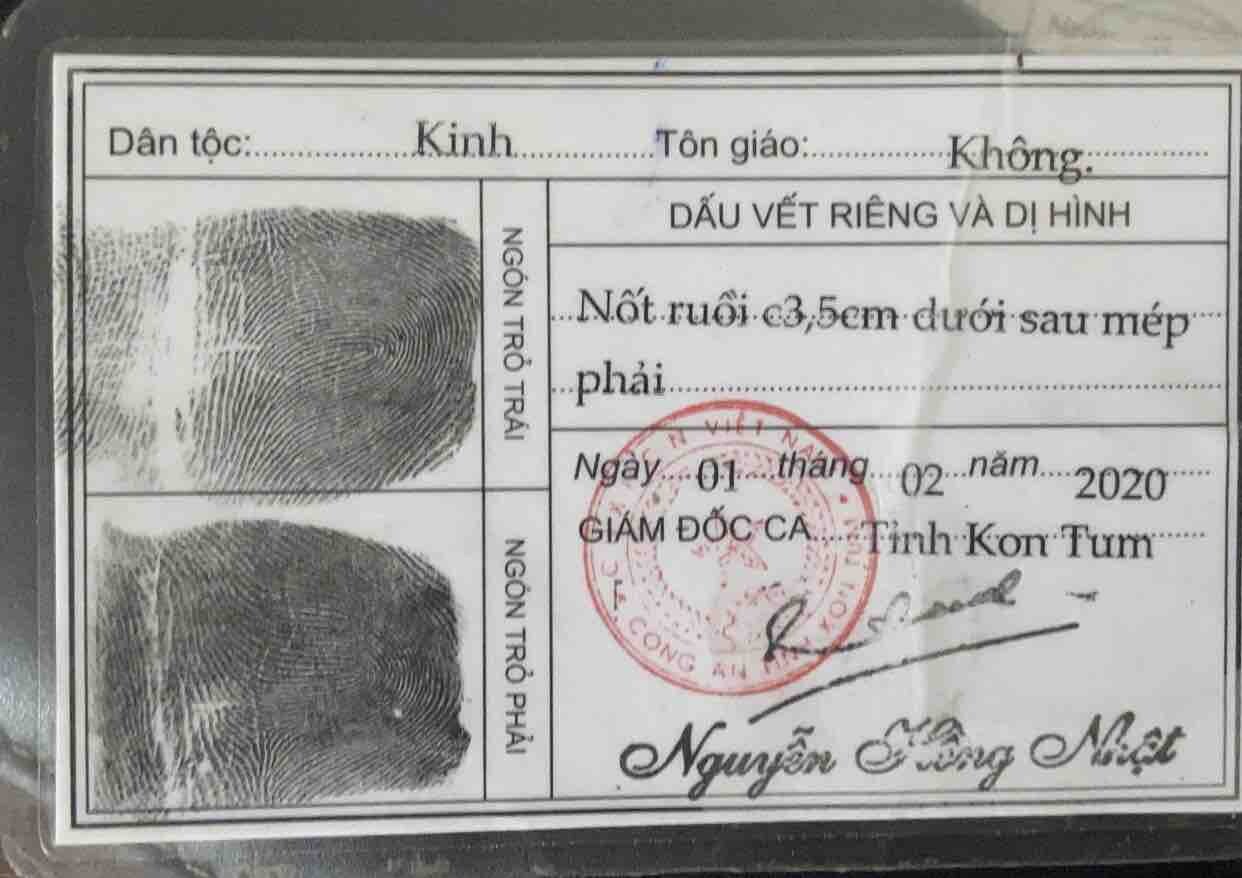 Dân tộc: Kinh Tôn giáo: Không.
NGÓN TRỎ TRÁI
DẤU VẾT RIÊNG VÀ DỊ HÌNH
Nốt ruồi c3,5cm dưới sau mép
phải
NGÓN TRỎ PHẢI
Ngày 01 tháng 02 năm 2020
GIÁM ĐỐC CA Tỉnh Kon Tum
CÔNG AN TỈNH KON TUM
Nguyễn Hồng Nhật